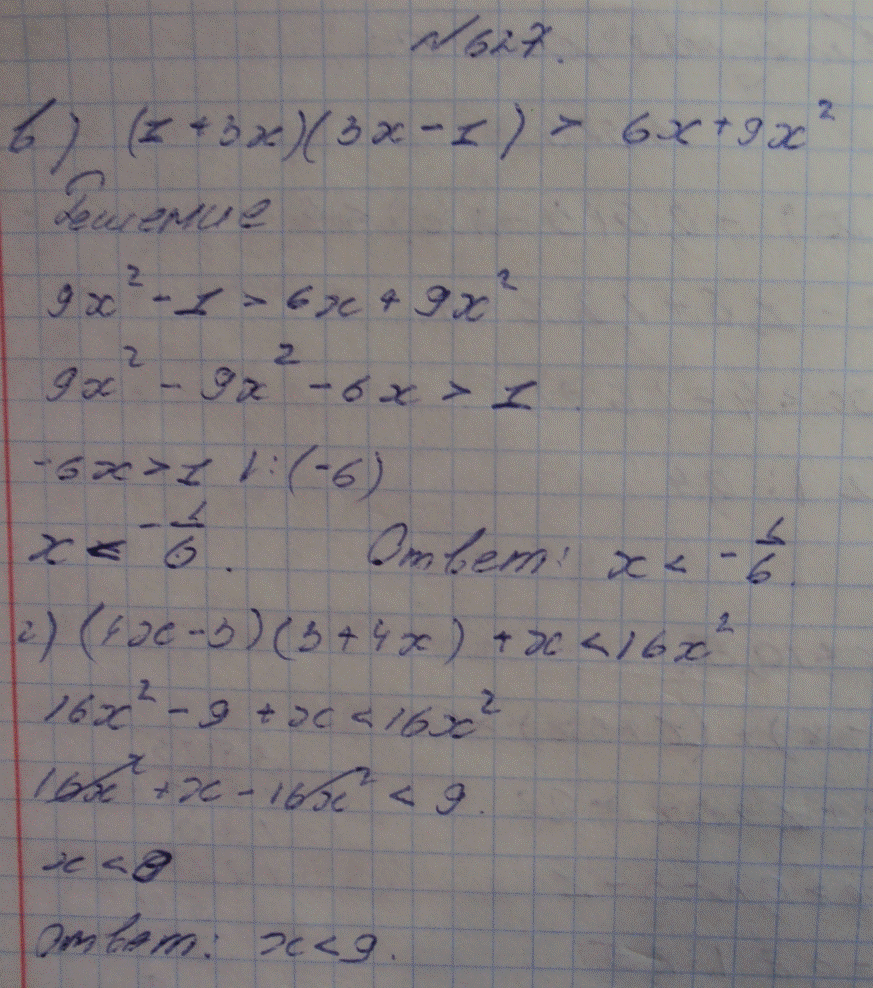 №627.
в) (1+3x)(3x-1) > 6x+9x²
Решение
9x²-1>6x+9x²
9x²-9x²-6x>1
-6x>1 |:(-6)
x < -1/6. Ответ: x < -1/6.
г) (4x-3)(3+4x)+x<16x²
16x²-9+x<16x²
16x²+x-16x²<9.
x<9
Ответ: x<9.